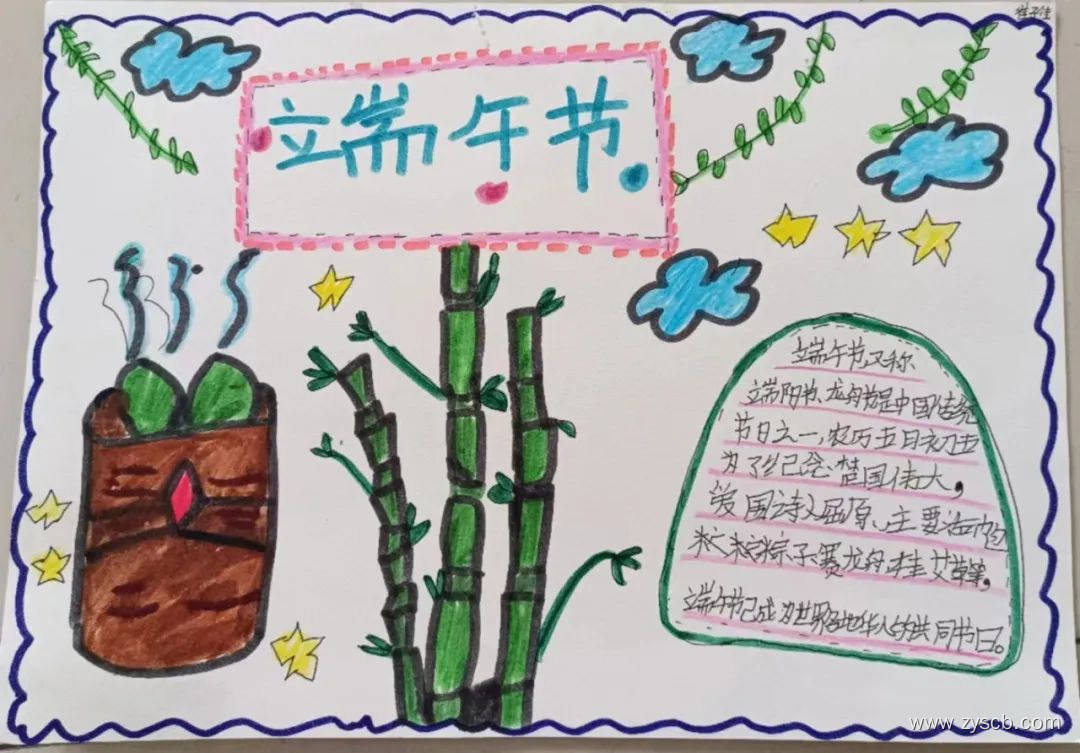 端午节
端午节又称
端阳节、龙舟节是中国传统
节日之一,农历五日初五
为了纪念楚国伟大,
爱国诗人屈原、主要活内包
粽子赛龙舟,挂艾草等,
端午节已成为世界各地华人的共同节日。
www.zyscb.com